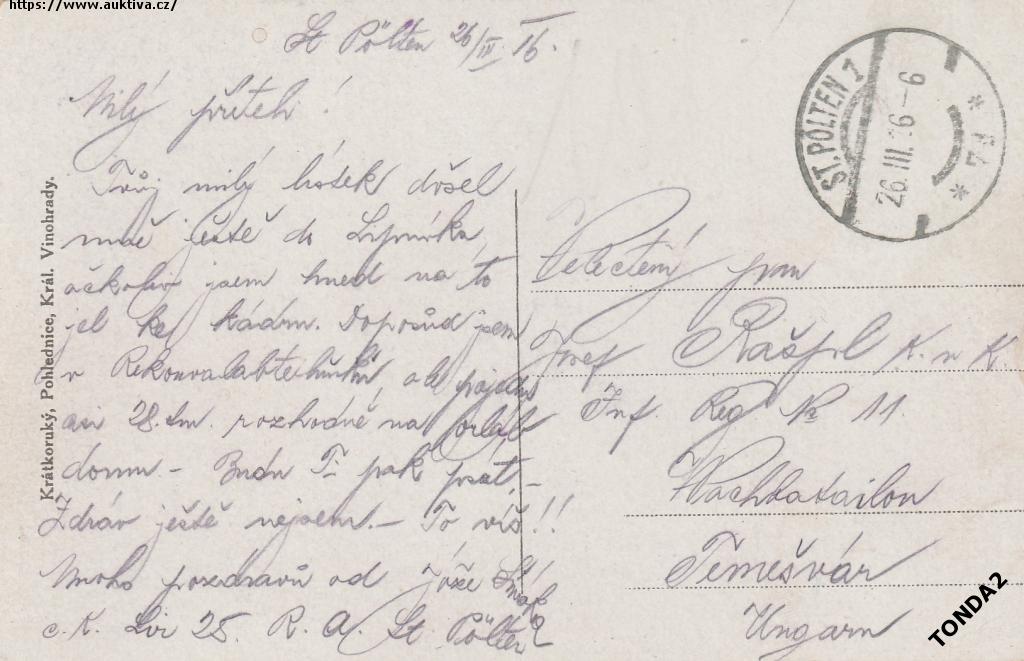 https://www.auktiva.cz/
St Pölten 26/III 16.
Milý příteli!
Tvůj milý lístek došel
mně ještě do Lipníka,
ačkoliv jsem hned na to
jel ke kádru. Doposud jsem
v
asi 28. t.m. rozhodně na
domu - Budu Ti pak psát -
Zdráv ještě nejsem. - To víš!!
Mnoho pozdravů od Jože
c. K. Lir 28. R. A. St Pölten
Krátkoruký, Pohlednice, Král. Vinohrady.
ST. PÖLTEN 1
26. III. 16-6
* 7d *
Velectěný pan
Josef Rašpl K. u K.
Inf. Reg № 11.
Wachbatailon
Temešvár
Ungarn
TONDA2